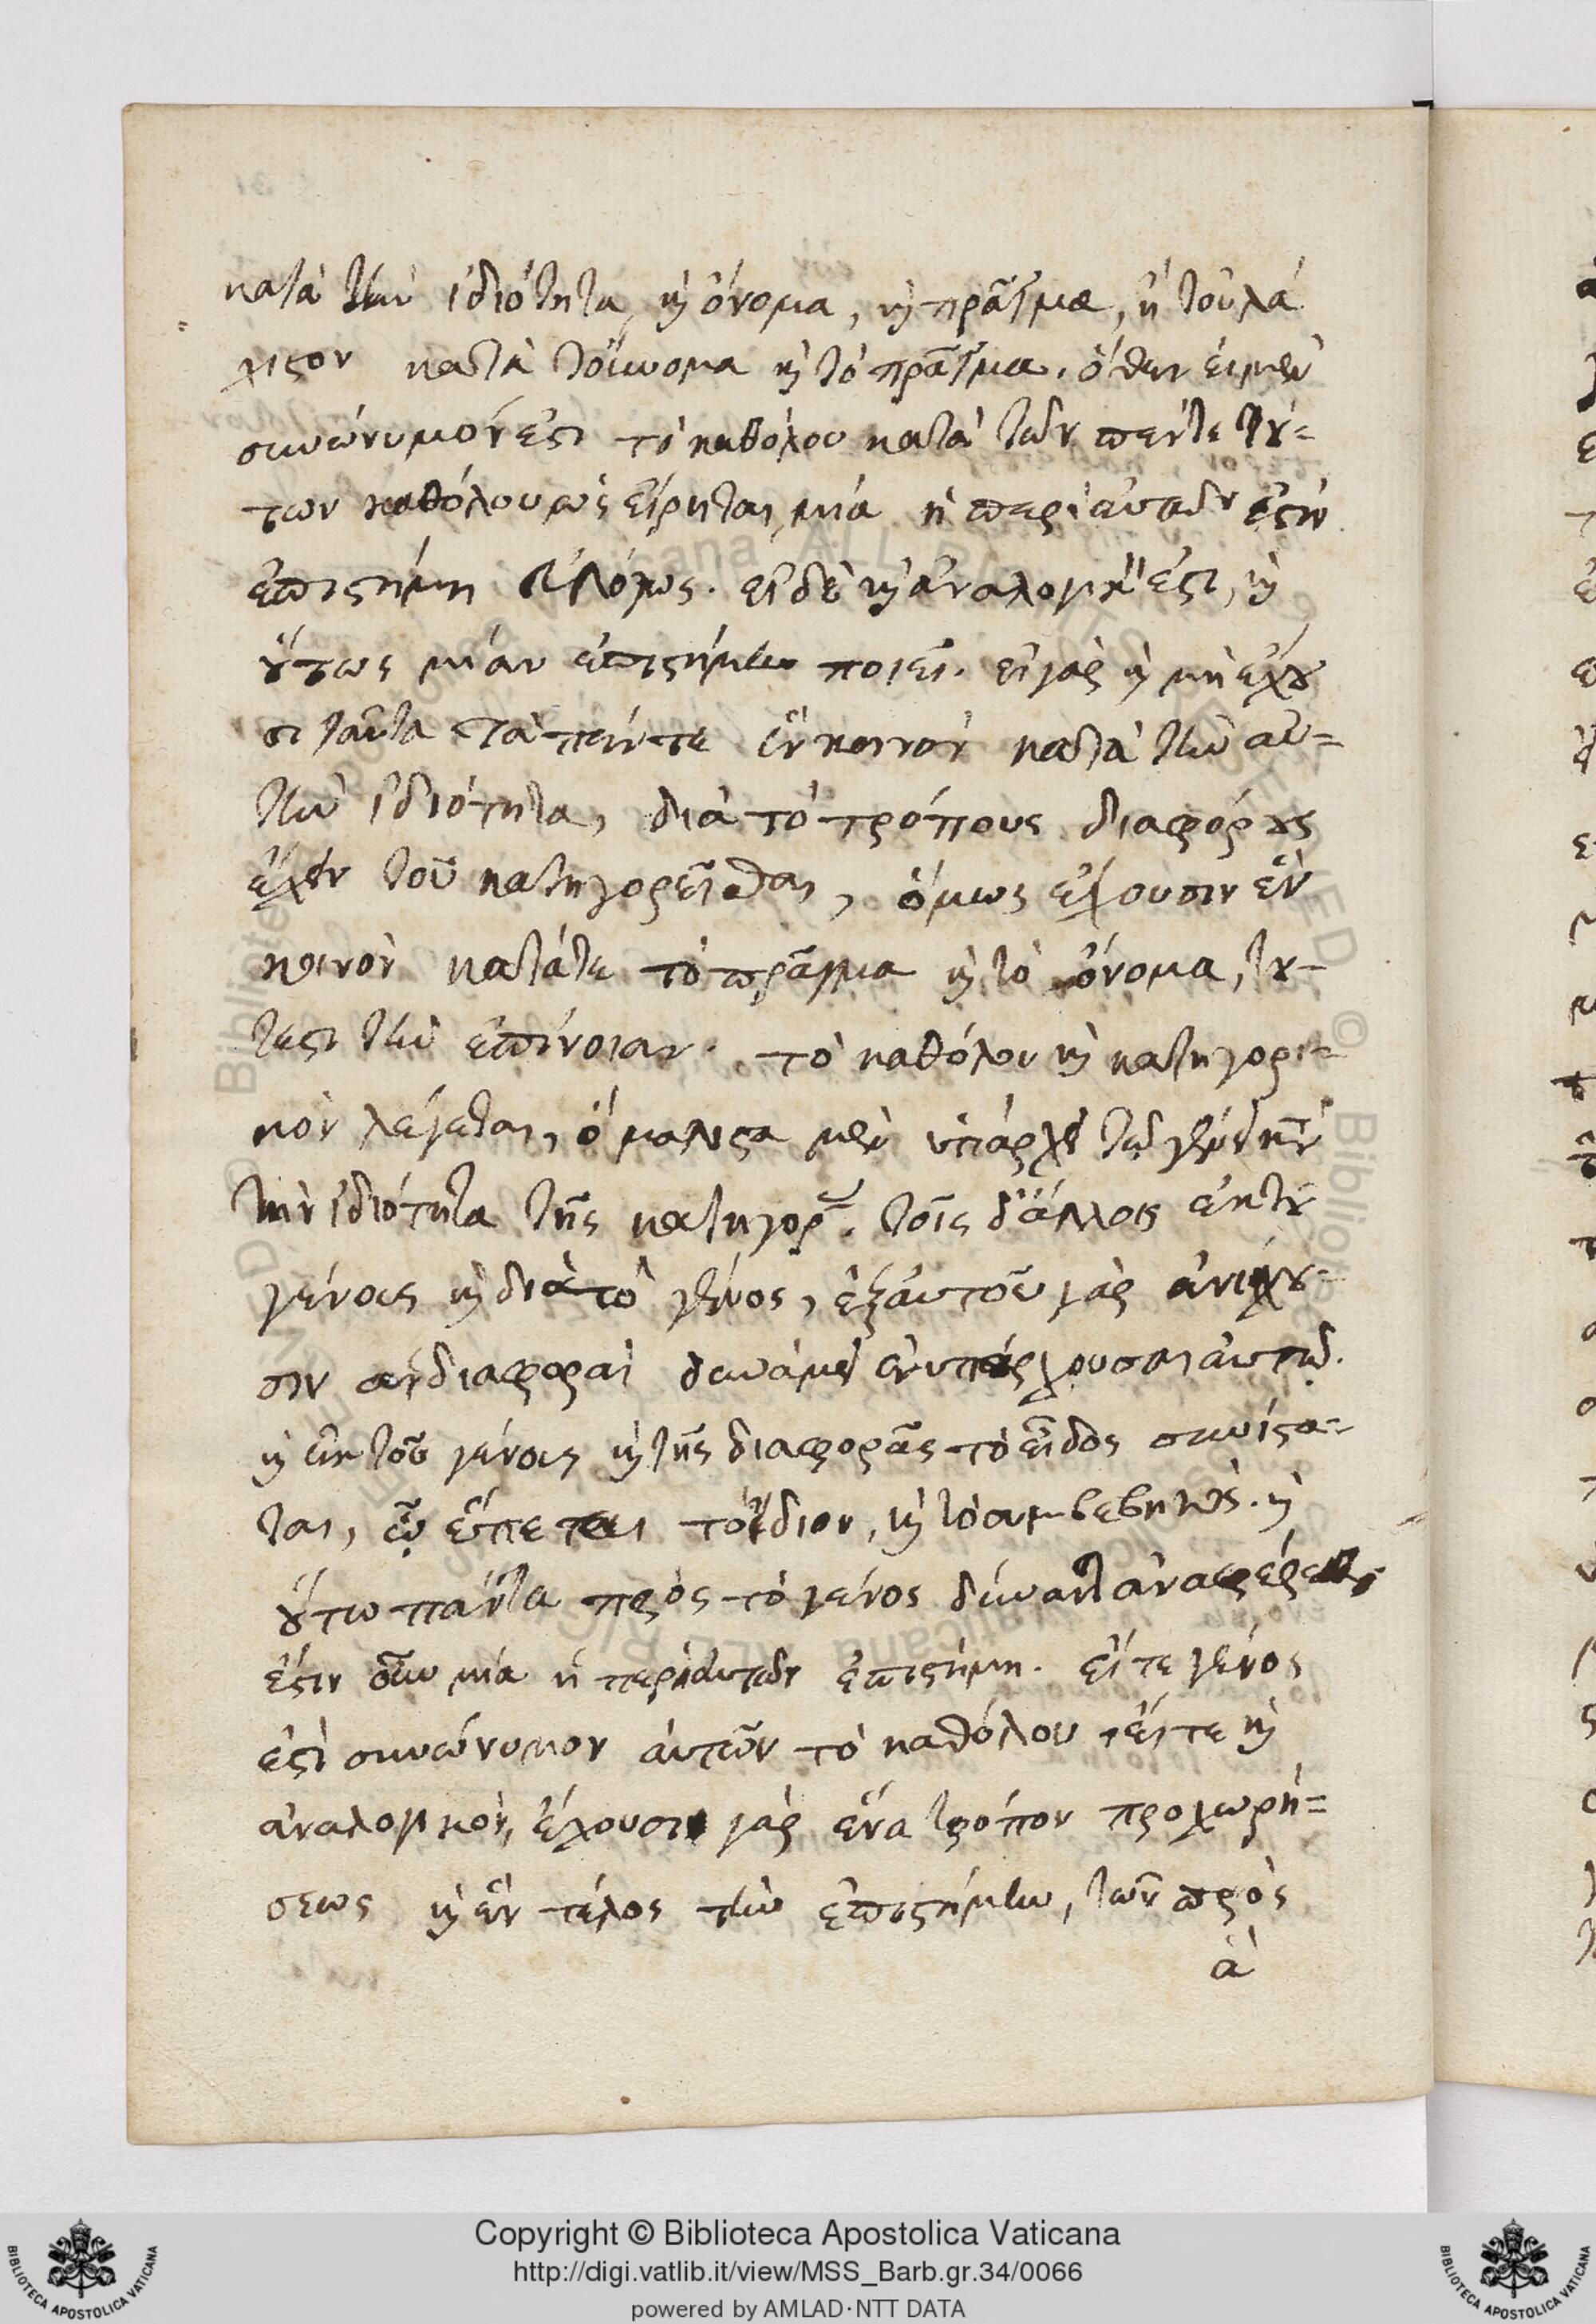 κατὰ τὴν ἰδιότητα, καὶ ὄνομα, καὶ πρᾶγμα, ἢ τοὐλά
χιστον κατὰ τοὔνομα καὶ τὸ πρᾶγμα. ὅθεν εἰ μὲν
συνώνυμόν ἐστι τὸ καθόλου κατὰ τῶν πέντε τού=
των καθόλου ὡς εἴρηται, μία ἡ περὶ αὐτῶν ἐστὶν
ἐπιστήμη εὐλόγως. εἰ δὲ καὶ ἀναλογικόν ἐστι, καὶ
οὕτως μίαν ἐπιστήμην ποιεῖ. εἰ γὰρ καὶ μὴ ἔχου
σι ταῦτα τὰ πέντε ἓν κοινὸν κατὰ τὴν αὐ=
τὴν ἰδιότητα, διὰ τὸ τρόπους διαφόρους
ἔχειν τοῦ κατηγορεῖσθαι, ὅμως ἔχουσιν ἓν
κοινὸν κατά τε τὸ πρᾶγμα καὶ τὸ ὄνομα, του-
τέστι τὴν ἐπίνοιαν. τὸ καθόλου καὶ κατηγορι-
κὸν λέγεται, ὃ μάλιστα μὲν ὑπάρχει τῷ γένει κατὰ
τὴν ἰδιότητα τῆς κατηγορ. τοῖς δ' ἄλλοις ἐκ τοῦ
γένους καὶ διὰ τὸ γένος, ἐξ αὐτοῦ γὰρ ἀνίσχου-
σιν αἱ διαφοραὶ δυνάμει ἐνυπάρχουσαι αὐτῷ.
καὶ ἐκ τοῦ γένους καὶ τῆς διαφορᾶς τὸ εἶδος συνίστα-
ται, ᾧ ἕπεται τὸ ἴδιον, καὶ τὸ συμβεβηκός. καὶ
οὕτω πάντα πρὸς τὸ γένος δύναται ἀναφέρεσθαι
ἔστιν οὖν μία ἡ περὶ αὐτῶν ἐπιστήμη. εἴτε γένος
ἐστὶ συνώνυμον αὐτῶν τὸ καθόλου, εἴτε καὶ
ἀναλογικόν, ἔχουσι γὰρ ἕνα τρόπον προχωρή=
σεως καὶ ἓν τέλος τὴν ἐπιστήμην, τῶν πρὸς
ἃ
Copyright © Biblioteca Apostolica Vaticana
http://digi.vatlib.it/view/MSS_Barb.gr.34/0066
powered by AMLAD·NTT DATA